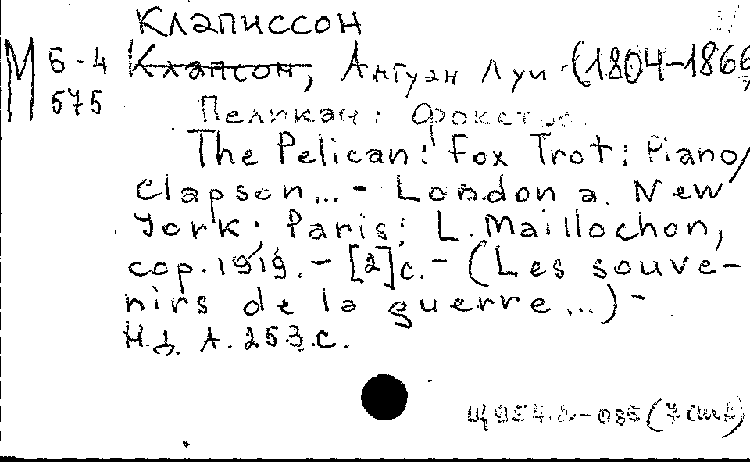 Клаписсон
М Б-4 Клапсон, Антуан Луи (1804-1866
575
Пеликан: Фокстрот.
The Pelican: Fox Trot: Piano/
Clapson... - London a. New
York; Paris: L. Maillochon,
cop. 1919. - [2]с. - (Les souve-
nirs de la guerre...) -
Н.д. А.253.С.